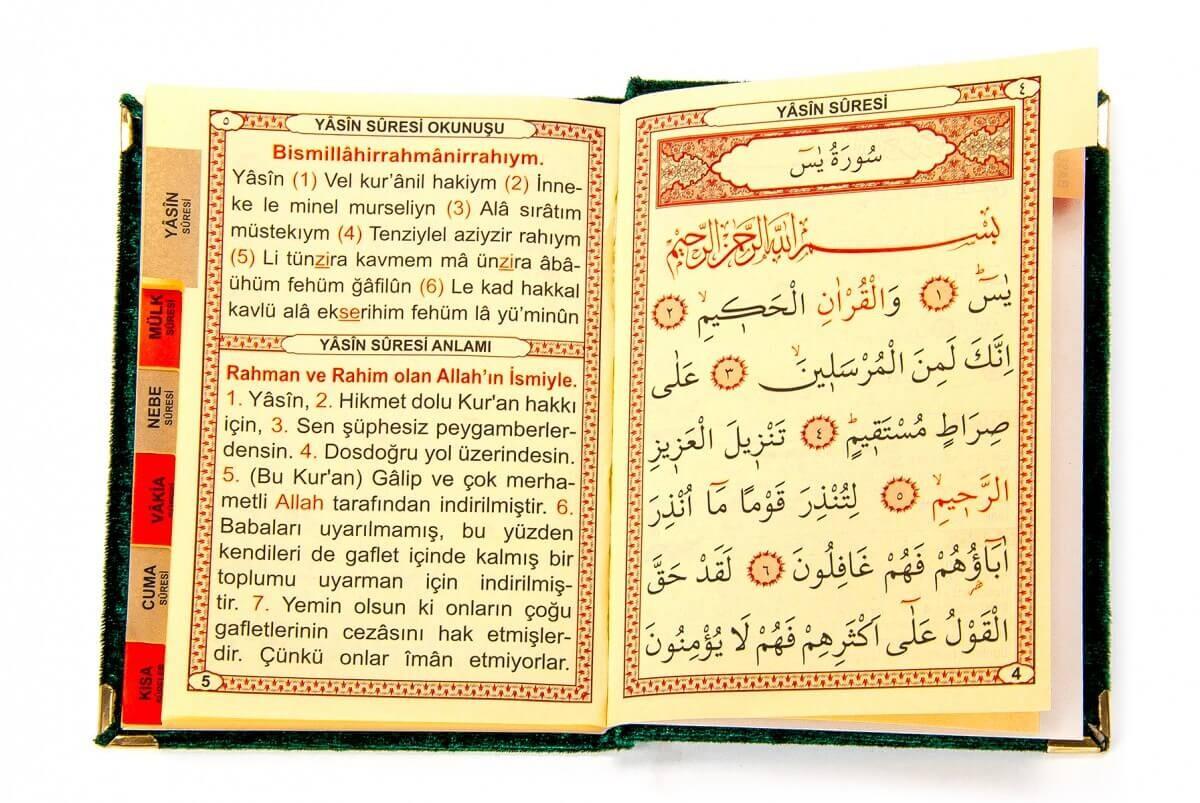 ٤
YÂSÎN SÛRESİ
سُورَةُ يٰسٓ
بِسْمِ اللّٰهِ الرَّحْمٰنِ الرَّحِيمِ
يٰسٓۜ ﴿١﴾ وَالْقُرْاٰنِ الْحَك۪يمِۙ ﴿٢﴾
اِنَّكَ لَمِنَ الْمُرْسَل۪ينَۙ ﴿٣﴾ عَلٰى
صِرَاطٍ مُسْتَق۪يمٍۜ ﴿٤﴾ تَنْز۪يلَ الْعَز۪يزِ
الرَّح۪يمِۙ ﴿٥﴾ لِتُنْذِرَ قَوْمًا مَٓا اُنْذِرَ
اٰبَٓاؤُ۬هُمْ فَهُمْ غَافِلُونَ ﴿٦﴾ لَقَدْ حَقَّ
الْقَوْلُ عَلٰٓى اَكْثَرِهِمْ فَهُمْ لَا يُؤْمِنُونَ
4
٥
YÂSÎN SÛRESİ OKUNUŞU
Bismillâhirrahmânirrahıym.
Yâsîn (1) Vel kur’ânil hakiym (2) İnne-
ke le minel murseliyn (3) Alâ sırâtım
müstekıym (4) Tenziylel aziyzir rahıym
(5) Li tünzira kavmem mâ ünzira âbâ-
ühüm fehüm ğâfilûn (6) Le kad hakkal
kavlü alâ ekserihim fehüm lâ yü’minûn
YÂSÎN SÛRESİ ANLAMI
Rahman ve Rahim olan Allah’ın İsmiyle.
1. Yâsîn, 2. Hikmet dolu Kur'an hakkı
için, 3. Sen şüphesiz peygamberler-
densin. 4. Dosdoğru yol üzerindesin.
5. (Bu Kur'an) Gâlip ve çok merha-
metli Allah tarafından indirilmiştir. 6.
Babaları uyarılmamış, bu yüzden
kendileri de gaflet içinde kalmış bir
toplumu uyarman için indirilmiş-
tir. 7. Yemin olsun ki onların çoğu
gafletlerinin cezâsını hak etmişler-
dir. Çünkü onlar îmân etmiyorlar.
5
YÂSÎN
SÛRESİ
MÜLK
SÛRESİ
NEBE
SÛRESİ
VÂKIA
CUMA
SÛRESİ
KISA